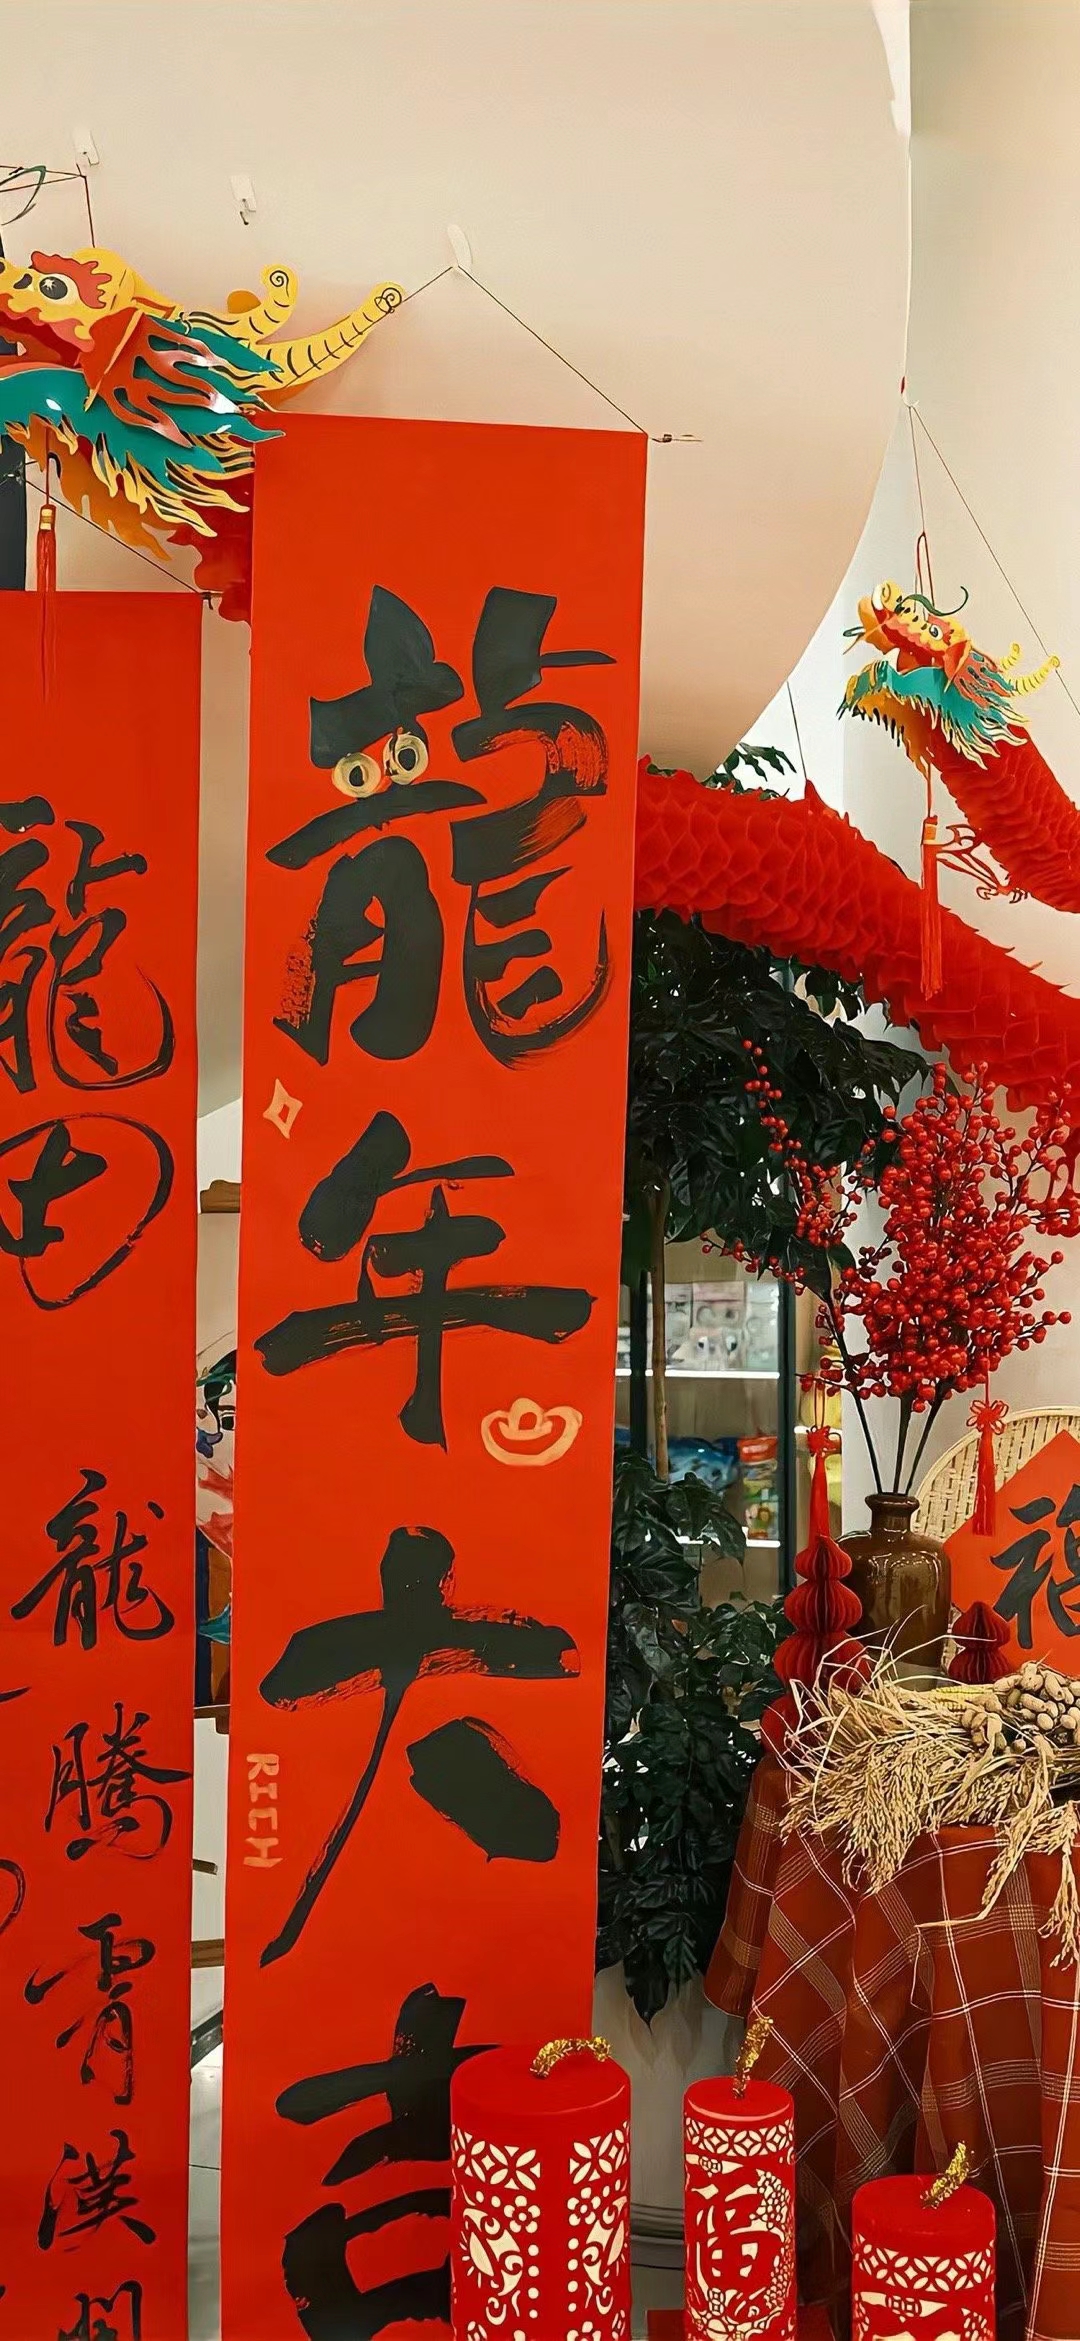 龍年大吉
RICH
龍
龍騰霄漢
福
福